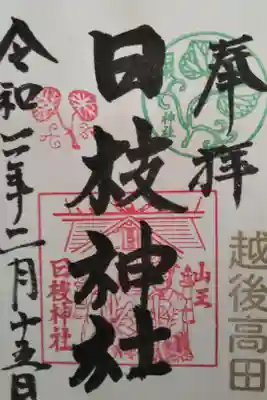 奉拝
越後高田
神社
日枝神社
山王
日枝神社
令和二年二月十五日